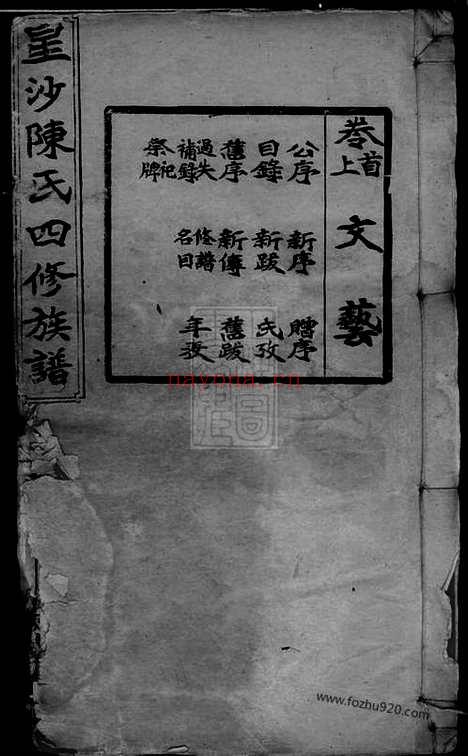 星沙陳氏四修族譜
卷首上
文藝
公序 新序 贈序
目錄 新跋 氏攷
舊序 新傳 舊跋
過失補錄 修譜名目 年攷
祭祀牌
nayona.cn
www.fozhu920.com